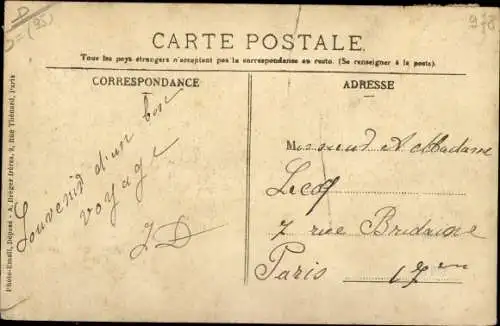 D
D=(95)
CARTE POSTALE
Tous les pays étrangers n'acceptent pas la correspondance au recto. (Se renseigner à la poste).
CORRESPONDANCE
Souvenir d'un bon
voyage
ADRESSE
Monsieur et Madame
Lecoq
7 rue Bridaine
Paris 17em
Photo-Email, Déposé - A. Breger frères, 9, Rue Thénard, Paris